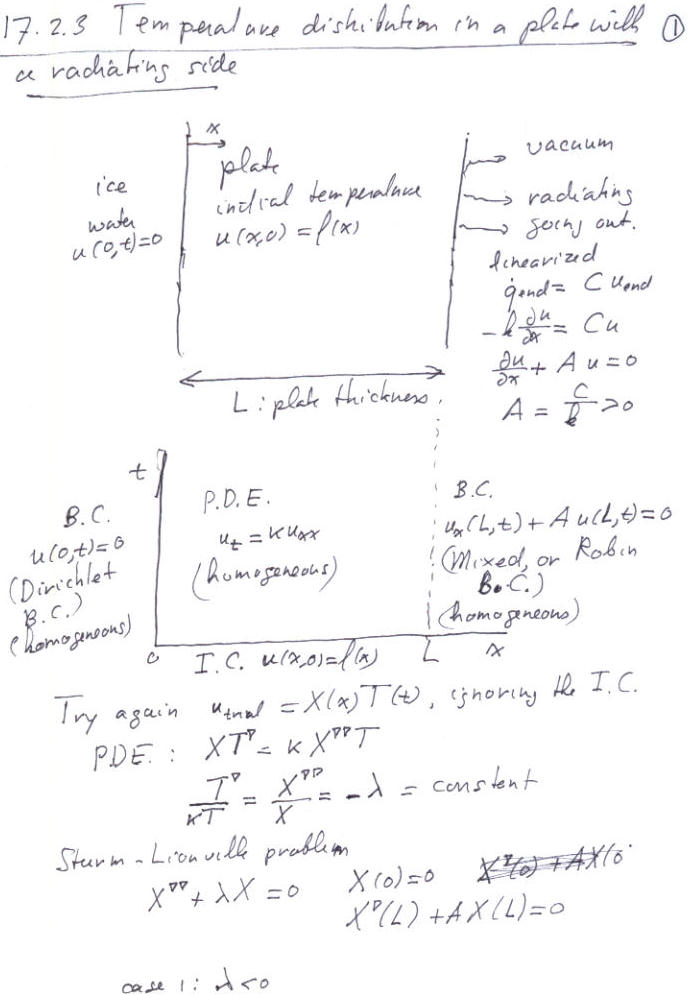 17.2.3 Temperature distribution in a plate with ①
a radiating side
x
ice
water
u(0,t)=0
plate
initial temperature
u(x,0) = f(x)
vacuum
radiating
going out.
linearized
q̇end = C uend
-k ∂u/∂x = Cu
∂u/∂x + A u = 0
A = C/k > 0
L : plate thickness.
t
B.C.
u(0,t)=0
(Dirichlet
B.C.)
(homogeneous)
P.D.E.
ut = κ uxx
(homogeneous)
B.C.
ux(L,t) + A u(L,t) = 0
(Mixed, or Robin
B.C.)
(homogeneous)
0 I.C. u(x,0)=f(x) L x
Try again utrial = X(x) T(t), ignoring the I.C.
PDE. : XT' = κ X''T
T'/κT = X''/X = -λ = constent
Sturm-Liouville problem
X'' + λX = 0 X(0)=0 X'(0) + AX(0
X'(L) + AX(L)=0
case 1: λ<0